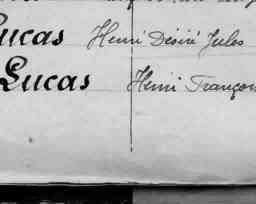 Lucas Henri Désiré Jules
Lucas Henri François